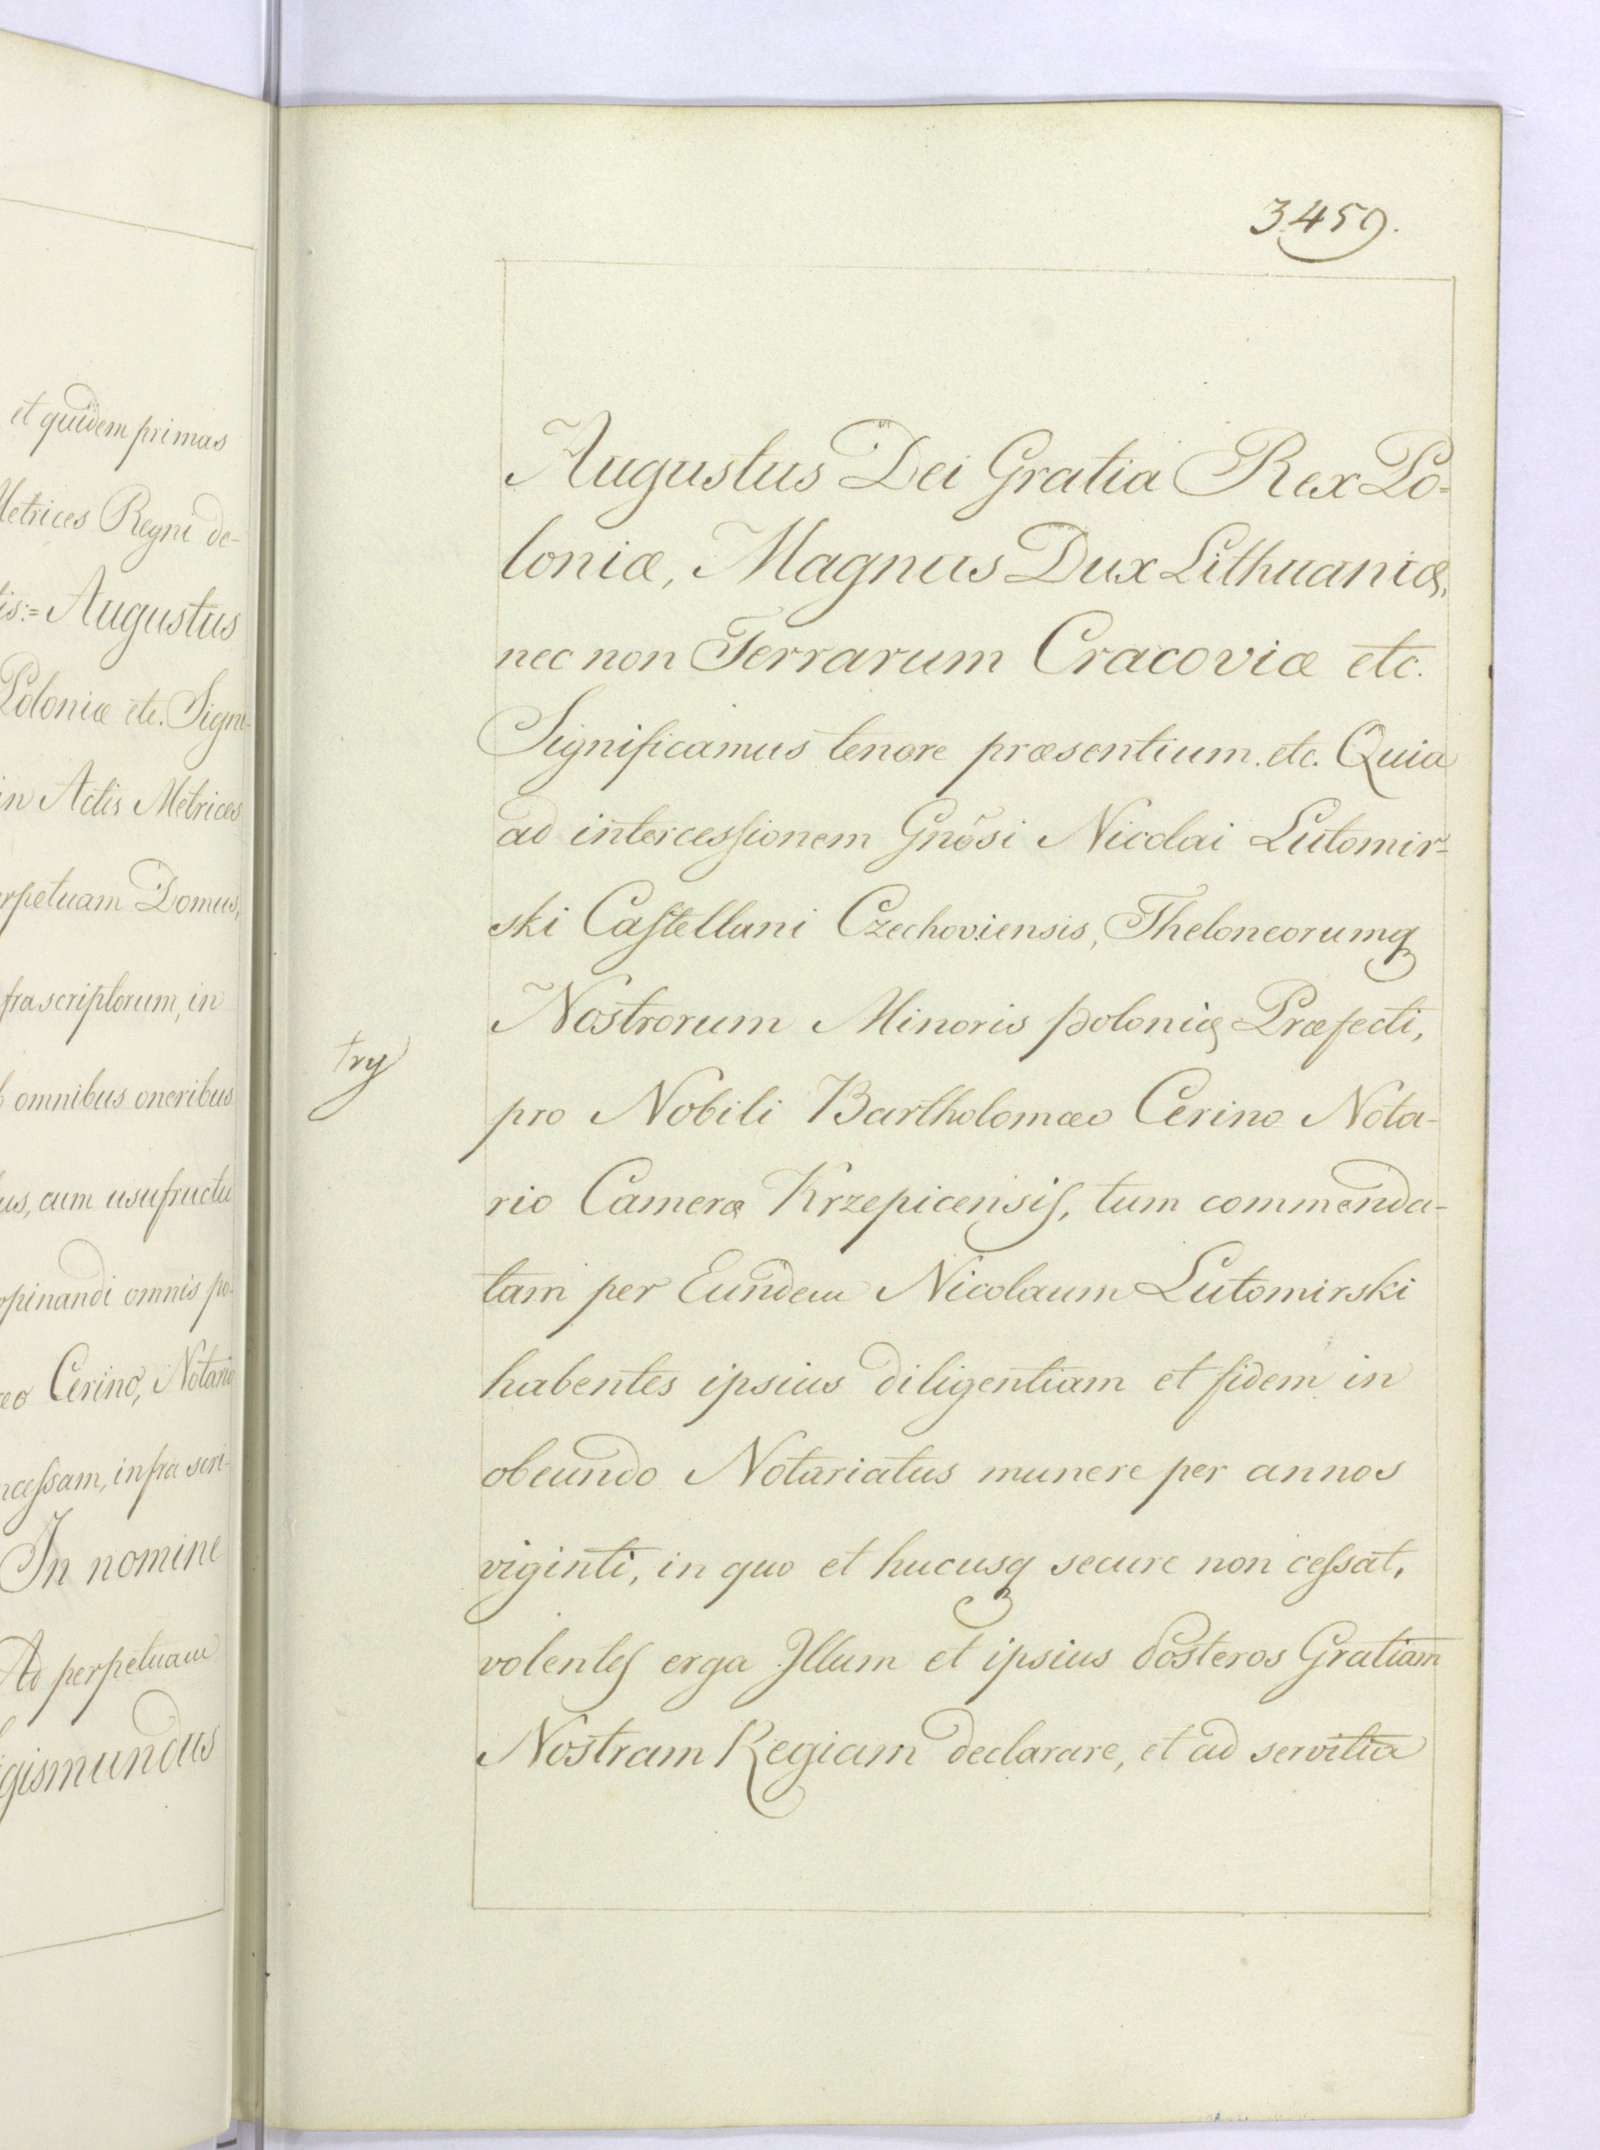 et quidem primas
Metrices Regni de-
is:= Augustus
Poloniæ etc. Signi-
in Actis Metrices
erpetuam Domus,
frascriptorum, in
omnibus oneribus
us, cum usufructu
opinandi omnis po-
æo Cerino, Notario
ncessam, infra scri-
In nomine
Ad perpetuam
igismundus
3459.
Augustus Dei Gratia Rex Po=
loniæ, Magnus Dux Lithuaniæ,
nec non Terrarum Cracoviæ etc.
Significamus tenore præsentium etc. Quia
ad intercessionem Gnõsi Nicolai Lutomir=
ski Castellani Czechoviensis, Theloneorumq
Nostrorum Minoris poloniæ Præfecti,
try
pro Nobili Bartholomæo Cerino Nota-
rio Cameræ Krzepicensis, tum commenda-
tam per Eundem Nicolaum Lutomirski
habentes ipsius diligentiam et fidem in
obeundo Notariatus munere per annos
viginti, in quo et hucusq secure non cessat,
volentes erga Illum et ipsius Posteros Gratiam
Nostram Regiam declarare, et ad servitia